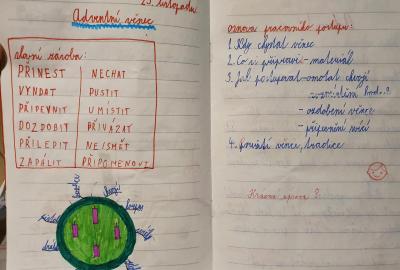 23. listopadu
Adventní věnec
slovní zásoba:
PŘINEST NECHAT
VYNDAT PUSTIT
PŘIPEVNIT UMÍSTIT
DOZDOBIT PŘIVÁZAT
PŘILEPIT NECHAT
ZAPÁLIT
osnova pracovního postupu:
1. Kdy chystal věnec
2. Co si připravil - materiál
3. Jak postupoval - omotal chvojí
- ozdobení věnce
- připevnění svící
4. použití věnce, tradice
Krásná úprava